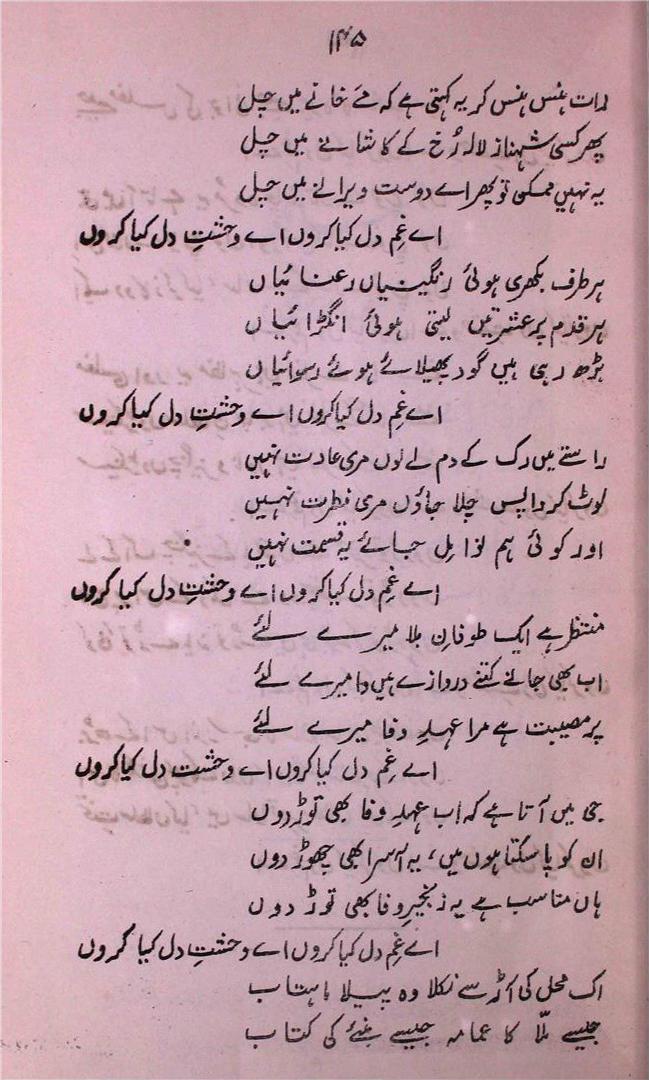 ۱۴۵
رات ہنس ہنس کر یہ کہتی ہے کہ مے خانے میں چل
پھر کسی شہناز لالہ رُخ کے کاشانے میں چل
یہ نہیں ممکن تو پھر اے دوست ویرانے میں چل
اے غمِ دل کیا کروں اے وحشتِ دل کیا کروں
ہر طرف بکھری ہوئی رنگینیاں رعنائیاں
ہر قدم پر عشرتیں لیتی ہوئی انگڑائیاں
بڑھ رہی ہیں گود پھیلائے ہوئے رسوائیاں
اے غمِ دل کیا کروں اے وحشتِ دل کیا کروں
راستے میں رک کے دم لے لوں مری عادت نہیں
لوٹ کر واپس چلا جاؤں مری فطرت نہیں
اور کوئی ہم نوا مل جائے یہ قسمت نہیں
اے غمِ دل کیا کروں اے وحشتِ دل کیا کروں
منتظر ہے ایک طوفانِ بلا میرے لئے
اب بھی جانے کتنے دروازے ہیں وا میرے لئے
پر مصیبت ہے مرا عہدِ وفا میرے لئے
اے غمِ دل کیا کروں اے وحشت دل کیا کروں
جی میں آتا ہے کہ اب عہدِ وفا بھی توڑ دوں
ان کو پا سکتا ہوں میں، یہ آسرا بھی چھوڑ دوں
ہاں مناسب ہے یہ زنجیرِ وفا بھی توڑ دوں
اے غمِ دل کیا کروں اے وحشتِ دل کیا کروں
اک محل کی آڑ سے نکلا وہ پیلا ماہتاب
جیسے ملّا کا عمامہ جیسے بنئے کی کتاب